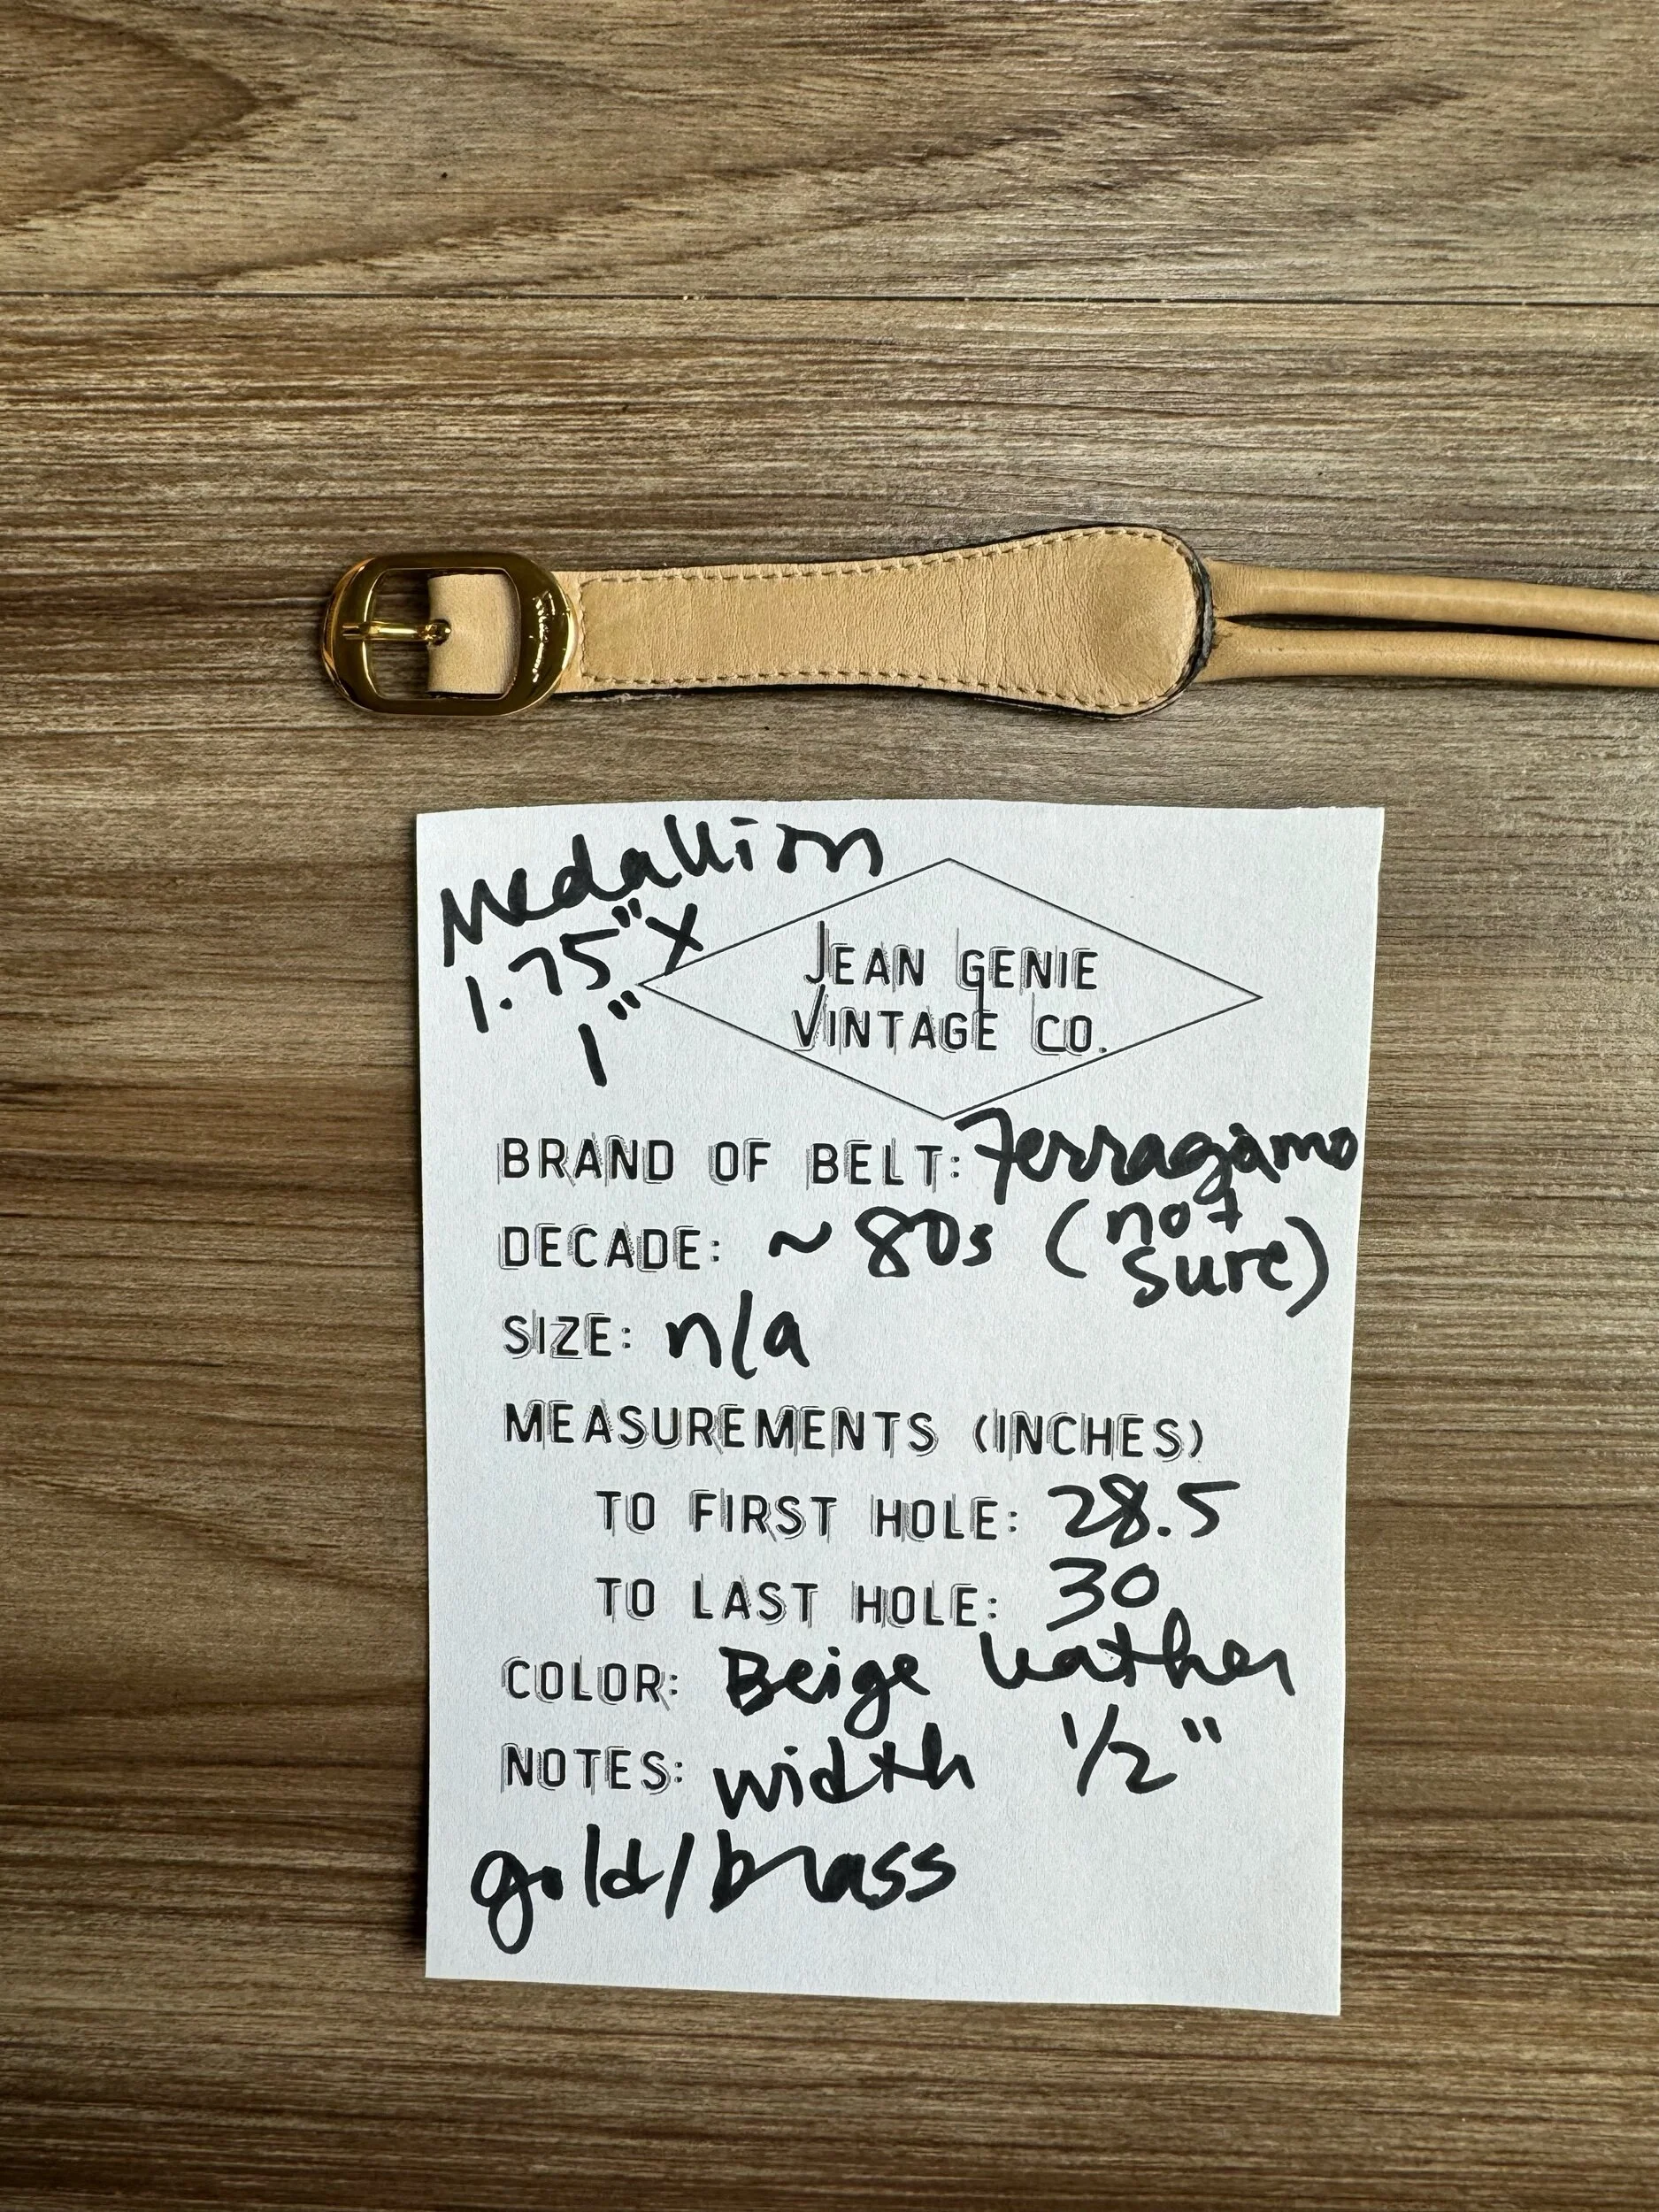 Medallion
1.75" X
1"
JEAN GENIE
VINTAGE CO.
BRAND OF BELT: Ferragamo
DECADE: ~ 80s (not sure)
SIZE: n/a
MEASUREMENTS (INCHES)
TO FIRST HOLE: 28.5
TO LAST HOLE: 30
COLOR: Beige leather
NOTES: width 1/2"
gold/brass